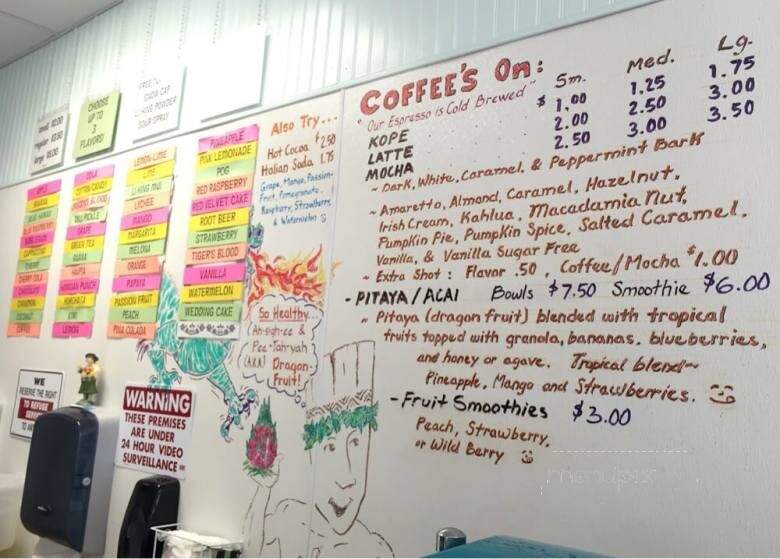 small $2.00
regular $2.50
large $3.00
CHOOSE
UP TO
3
FLAVORS!
FREE
SNOW CAP
LI HING POWDER
SOUR SPRAY
APPLE
BANANA
BLUE HAWAII
BLUE RASPBERRY
BUBBLEGUM
CAPPUCCINO
CHERRY
CHERRY COLA
CHOCOLATE
CINNAMON
COCONUT
COFFEE
COLA
COTTON CANDY
DILL PICKLE
GRAPE
GREEN TEA
GUAVA
HAUPIA
HAWAIIAN PUNCH
HORCHATA
KIWI
LEMON
LEMON-LIME
LIME
LI HING MUI
LYCHEE
MANGO
MARGARITA
MELONA
ORANGE
PAPAYA
PASSION FRUIT
PEACH
PINA COLADA
PINEAPPLE
PINK LEMONADE
POG
RED RASPBERRY
RED VELVET CAKE
ROOT BEER
STRAWBERRY
TIGER'S BLOOD
VANILLA
WATERMELON
WEDDING CAKE
Also Try...
Hot Cocoa $2.50
Italian Soda 1.75
Grape, Mango, Passion-
Fruit, Pomegranate,
Raspberry, Strawberry,
& Watermelon
So Healthy...
(Ah-sigh-ee &
Pee-Tah-yah
(AKA) Dragon
Fruit!
WE
RESERVE THE RIGHT
TO REFUSE
WARNING
THESE PREMISES
ARE UNDER
24 HOUR VIDEO
SURVEILLANCE
COFFEE'S On: Sm. Med. Lg.
"Our Espresso is Cold Brewed"
KOPE $1.00 1.25 1.75
LATTE 2.00 2.50 3.00
MOCHA 2.50 3.00 3.50
~ Dark, White, Caramel, & Peppermint Bark
~ Amaretto, Almond, Caramel, Hazelnut,
Irish Cream, Kahlua, Macadamia Nut,
Pumpkin Pie, Pumpkin Spice, Salted Caramel,
Vanilla, & Vanilla Sugar Free
~ Extra Shot: Flavor .50, Coffee/Mocha $1.00
- PITAYA/ACAI Bowls $7.50 Smoothie $6.00
~ Pitaya (dragon fruit) blended with tropical
fruits topped with granola, bananas, blueberries,
and honey or agave. Tropical blend~
Pineapple, Mango and Strawberries.
- Fruit Smoothies $3.00
Peach, Strawberry,
or Wild Berry
menupix